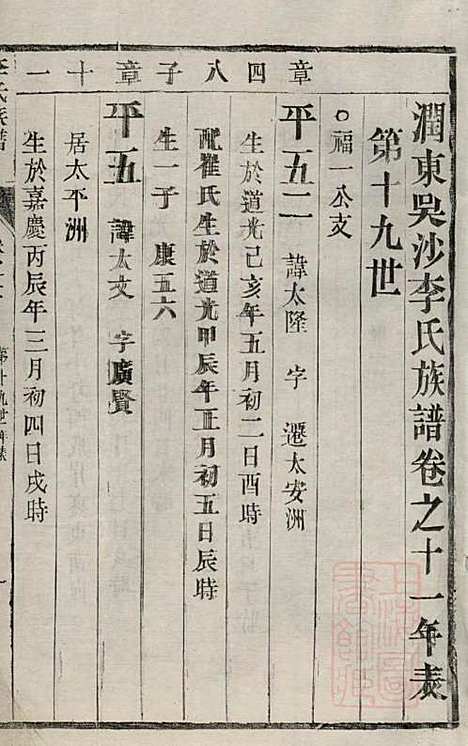 潤東吳沙李氏族譜卷之十一年表
第十九世
○福一公支
平五二 諱太隆 字 遷太安洲
生於道光己亥年五月初二日酉時
配翟氏生於道光甲辰年正月初五日辰時
生一子 康五六
平五 諱太文 字廣賢
居太平洲
生於嘉慶丙辰年三月初四日戌時
章四八子章十一
李氏族譜
第十九世年表